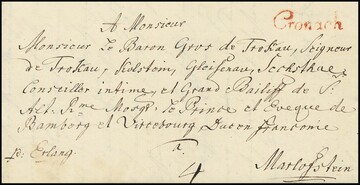 A Monsieur
Cronach
Monsieur Le Baron Gros de Trokau, Seigneur
de Trokau, Kolstein, Gleisenau,
Conseiller intime, et Grand Bailiff de S:
Alt: R:me Mosgr. Le Prince et Eveque de
Bamberg et Wirtebourg Duc en franconie
p: Erlang
a
4
Marlofstein